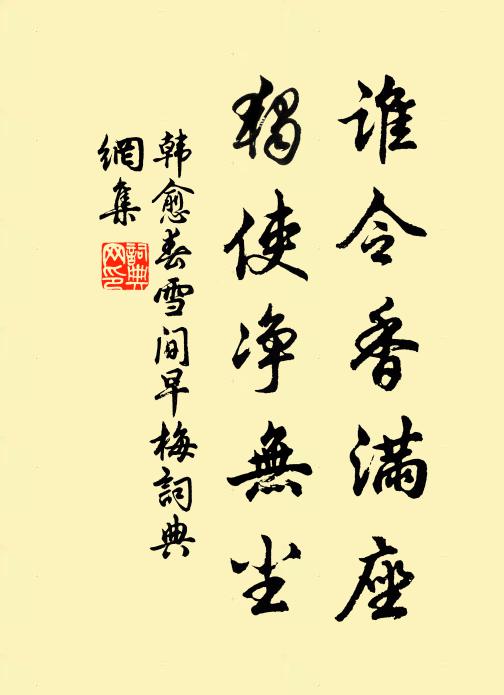 谁令香满座
獨使净無尘
韩愈春雪间早梅詞典
網集
詞典网印